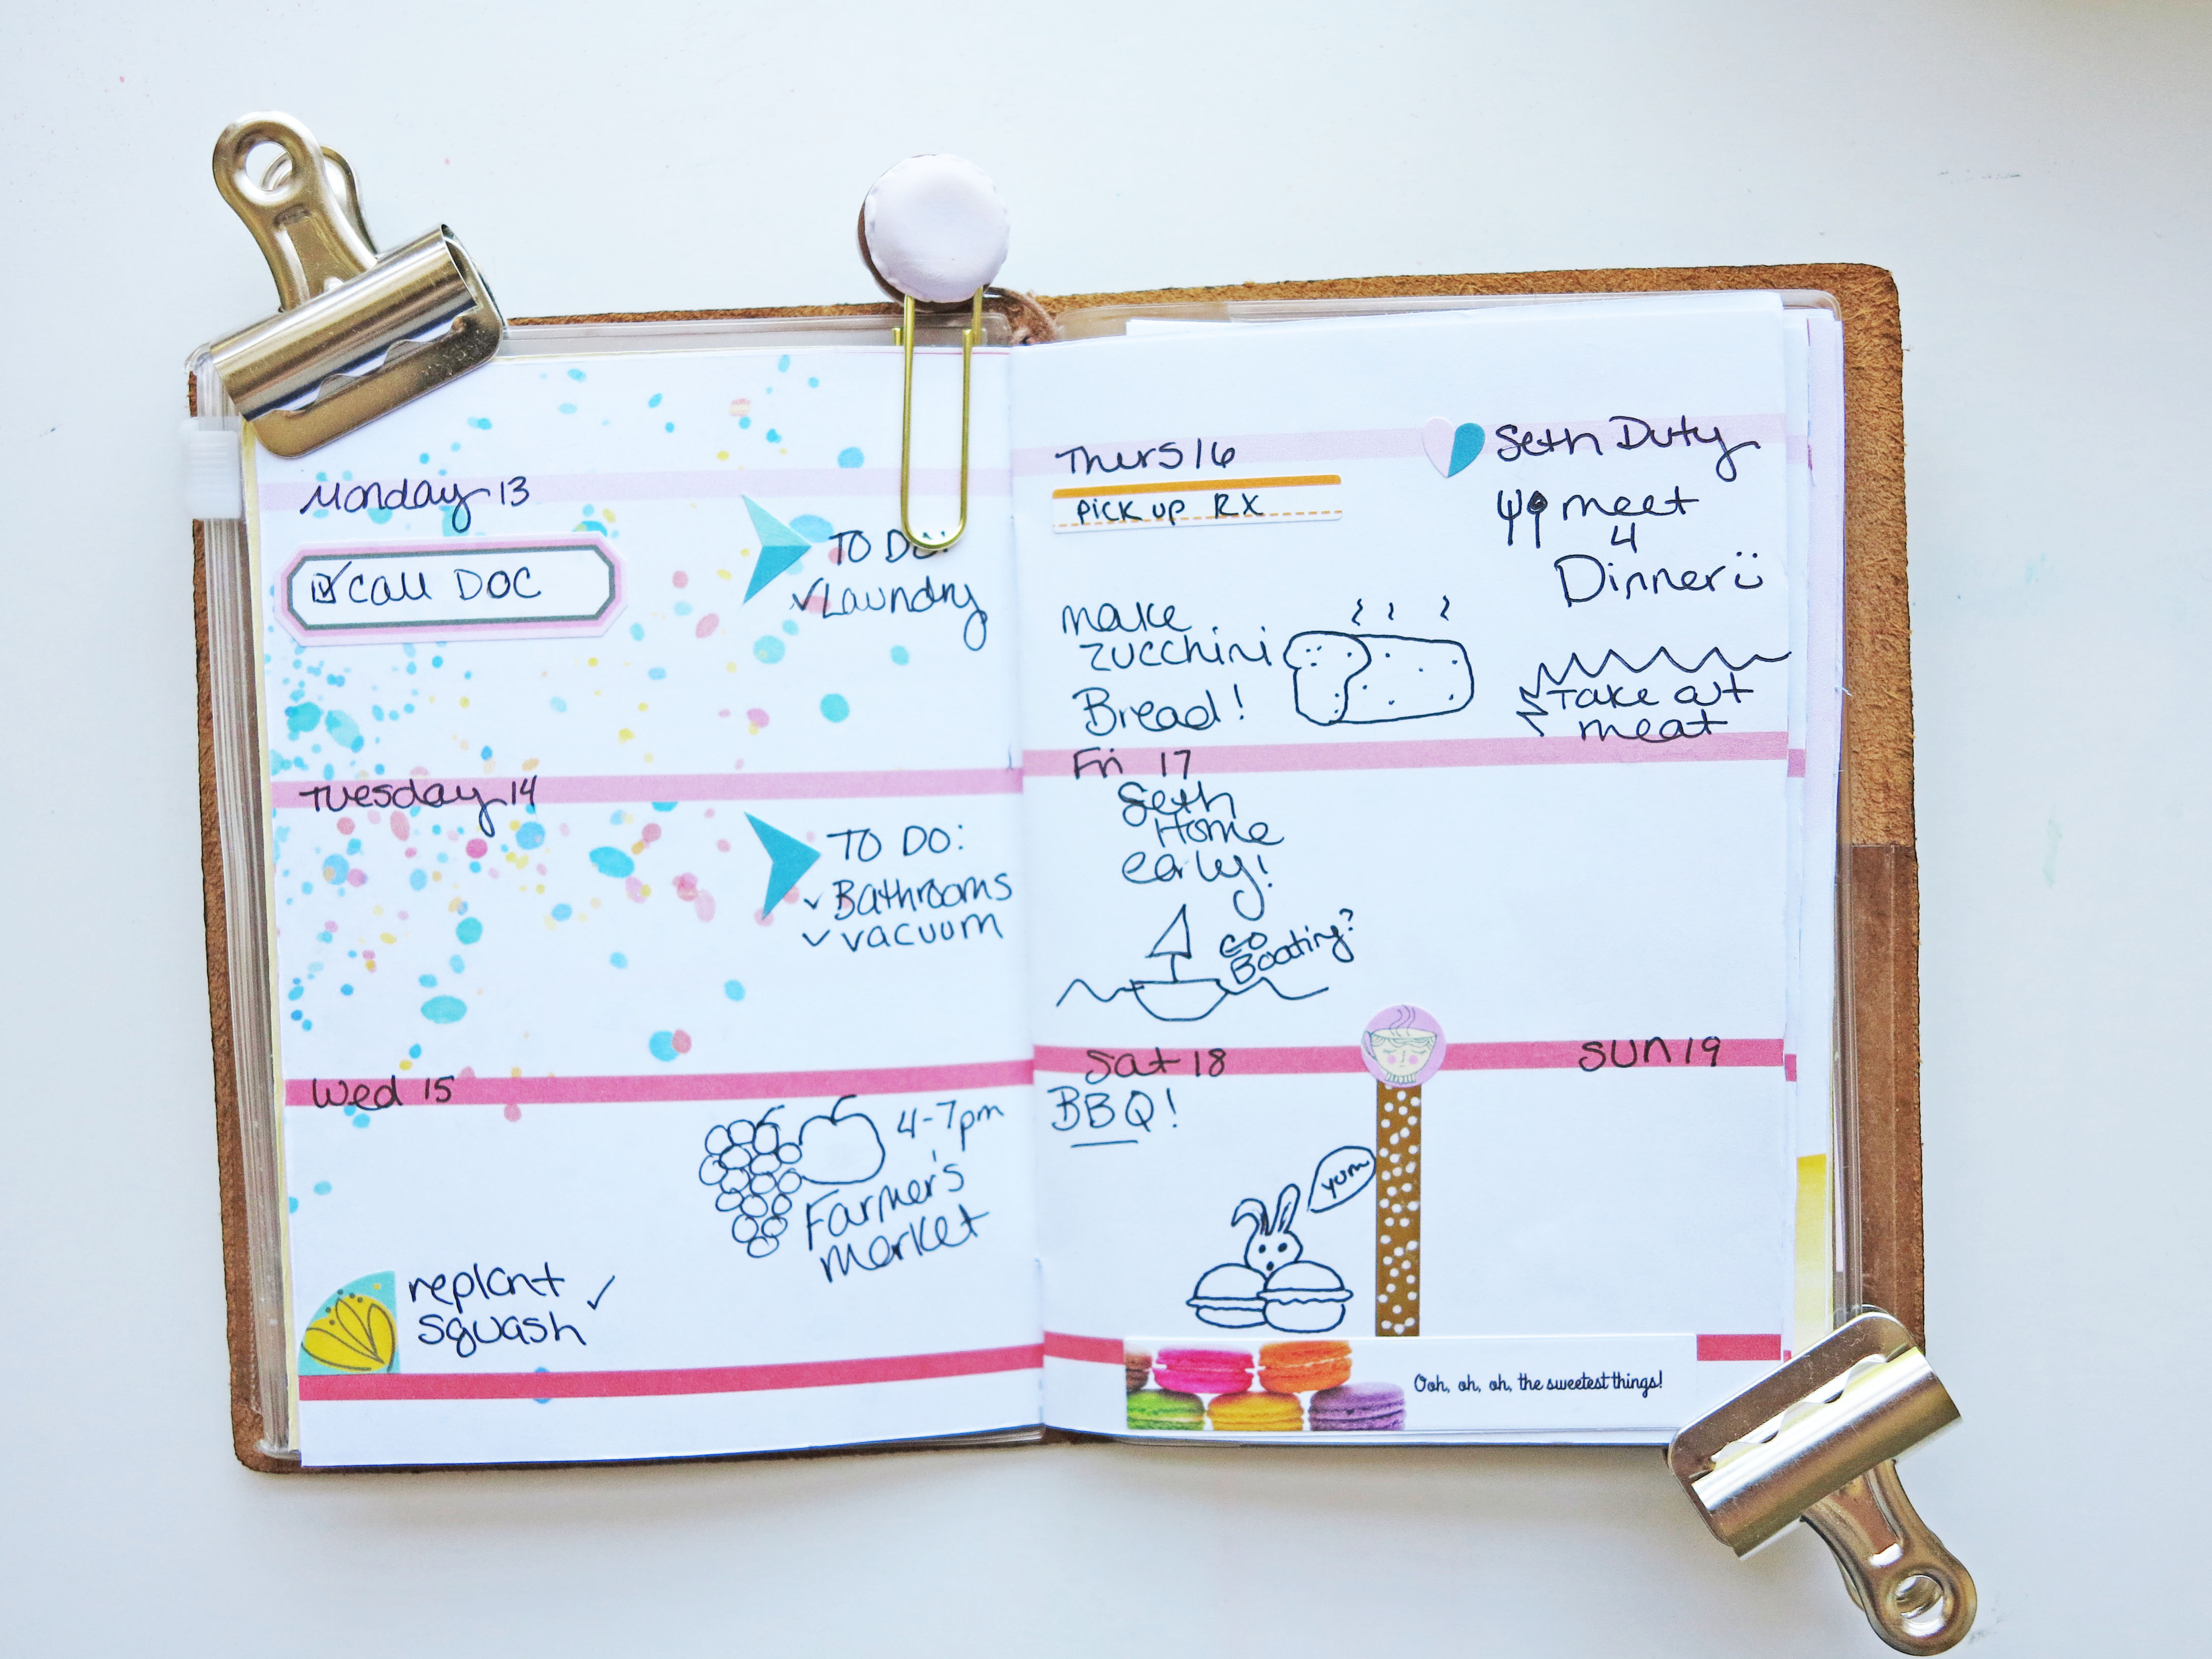 Monday 13
call DOC
TO DO:
Laundry
Tuesday 14
TO DO:
Bathrooms
vacuum
Wed 15
4-7pm
Farmer's
market
replant
squash
Thurs 16
Pick up RX
Seth Duty
meet
4
Dinner
make
zucchini
Bread!
Take out
meat
Fri 17
Seth
Home
early!
Go
Boating?
Sat 18
BBQ!
yum
Sun 19
Ooh, oh, oh, the sweetest things!